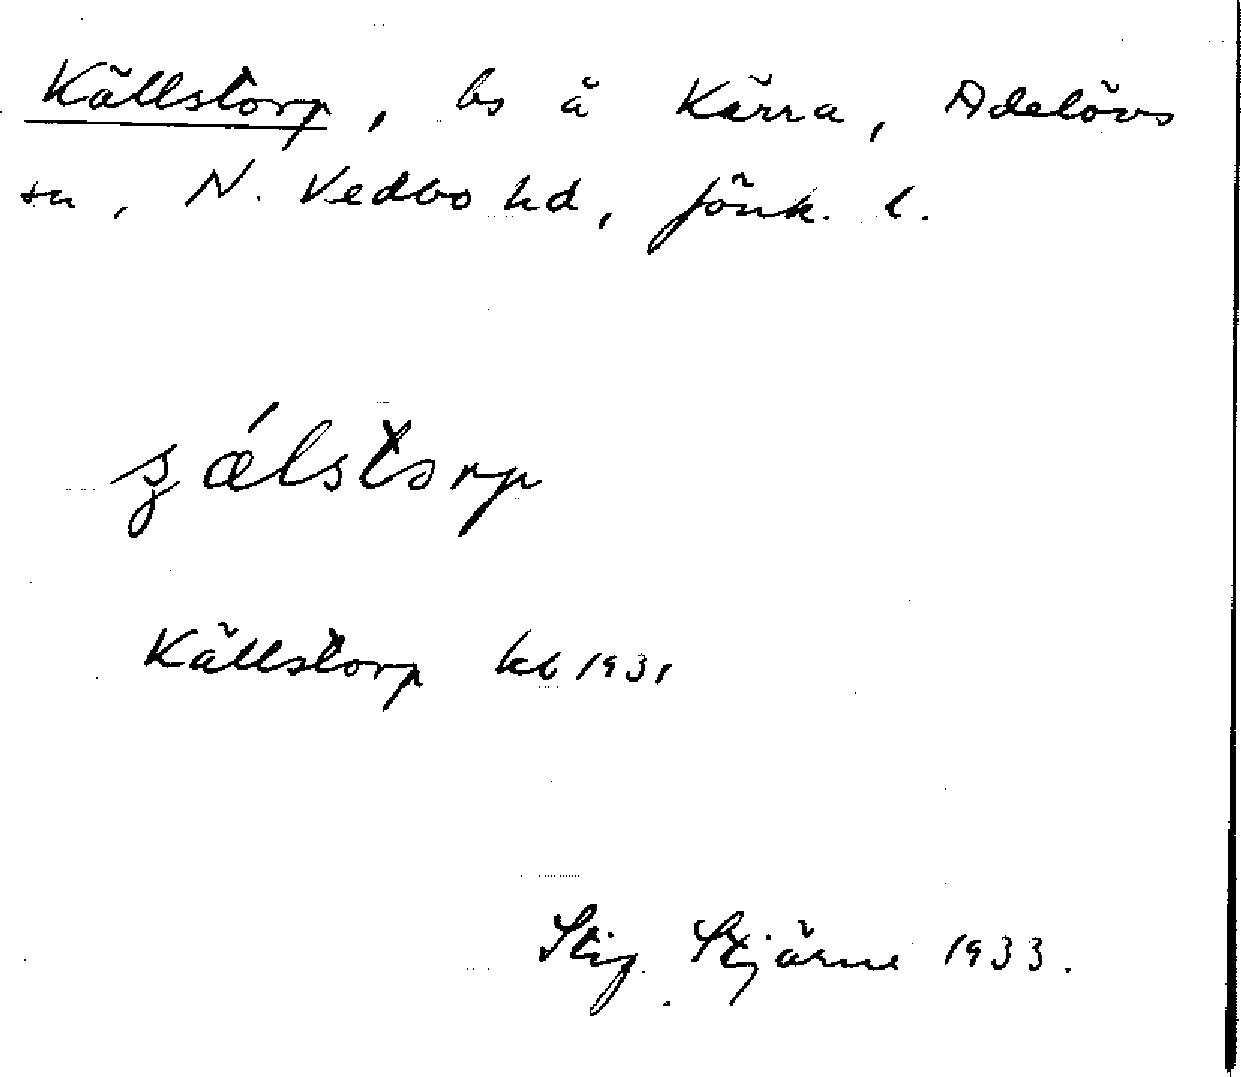 Källstorp, bs å Kärra, Adelövs
sn, N. Vedbo hd, Jönk. l.
ʂálstorp
Källstorp kb 1931
Stig Stjärne 1933.